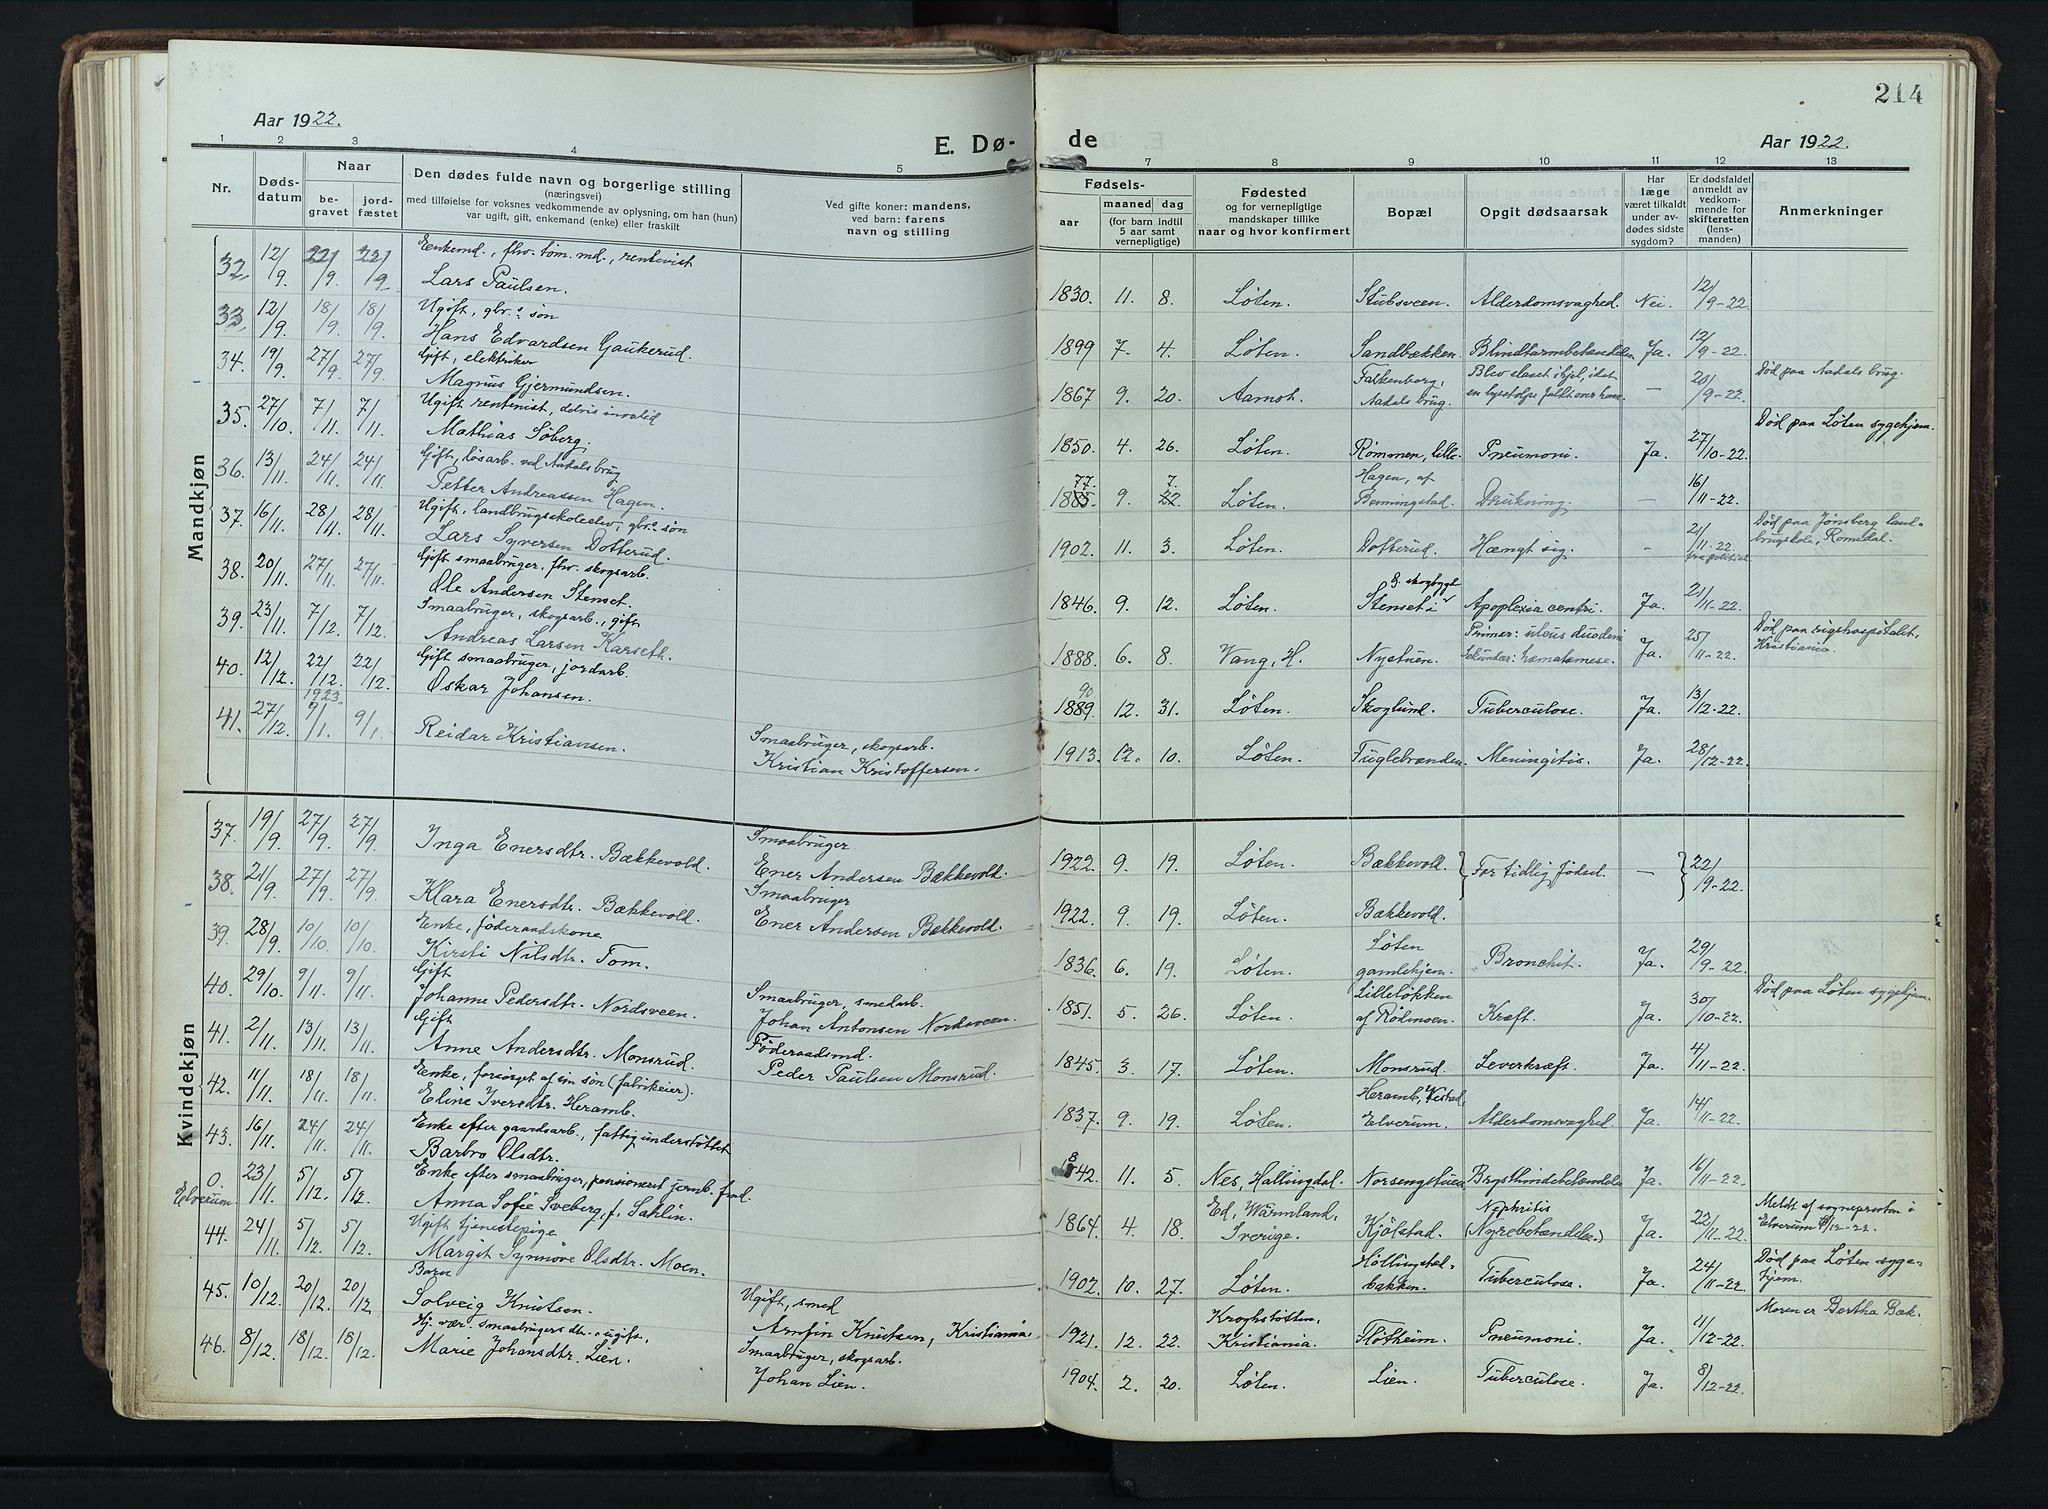 214
Aar 1922.
E. Dø-
de
Aar 1922.
1 2 3 4 5 7 8 9 10 11 12 13
Nr.
Døds-
datum
Naar
be-
gravet
jord-
fæstet
Den dødes fulde navn og borgerlige stilling
(næringsvei)
med tilføielse for voksnes vedkommende av oplysning, om han (hun)
var ugift, gift, enkemand (enke) eller fraskilt
Ved gifte koner: mandens,
ved barn: farens
navn og stilling
Fødsels-
aar
maaned
dag
(for barn indtil
5 aar samt
vernepligtige)
Fødested
og for vernepligtige
mandskaper tillike
naar og hvor konfirmert
Bopæl
Opgit dødsaarsak
Har
læge
været tilkaldt
under av-
dødes sidste
sygdom?
Er dødsfaldet
anmeldt av
vedkom-
mende for
skifteretten
(lens-
manden)
Anmerkninger
Mandkjøn
32. 12/9 22/9 22/9 Enkemd., fhv. tøm. md., rentenist
Lars Paulsen. 1830. 11. 8. Løten. Stubsveen. Alderdomsvaghed. Nei. 12/9-22.
33. 12/9. 18/9. 18/9. Ugift, gbr.s søn
Hans Edvardsen Gaukerud. 1899 7. 4. Løten. Sandbækken. Blindtarmbetændelse Ja. 12/9-22.
34. 19/9. 27/9. 27/9. Gift, elektriker
Magnus Gjermundsen. 1867 9. 20. Aamot. Falkenborg, Aadals brug. Blev slaaet ihjel, idet en lysstolpe faldt over ham — 20/9-22. Død paa Aadals brug.
35. 27/10. 7/11. 7/11. Ugift rentenist, delvis invalid
Mathias Søberg. 1850. 4. 26. Løten. Rømmen, lille. Pneumoni. Ja. 27/10-22. Død paa Løten sygehjem.
36. 13/11. 24/11. 24/11. Gift, løsarb. ved Aadals brug
Petter Andreassen Hagen. 1877. 9. 7. Løten. Hagen, af Benningstad. Drukning. — 16/11-22.
37. 16/11. 28/11. 28/11. Ugift, landbrugsskoleelev, gbr.s søn
Lars Syversen Dotterud. 1902. 11. 3. Løten. Dotterud. Hængt sig. - 21/11-22. fra politiet Død paa Jønsberg land-
brugskole, Romedal.
38. 20/11. 27/11. 27/11. Gift smaabruger, fhv. skogsarb.
Ole Andersen Stenset. 1846. 9. 12. Løten. Stenset i Apoplexia Ja. 21/11-22.
39. 23/11. 7/12. 7/12. Smaabruger, skogsarb., gift
Andreas Larsen Karseth. 1888. 6. 8. Vang, H. Nystuen. Primær: ulcus duodeni
Sekundær: hæmatemese. Ja. 25/11-22. Død paa rigshospitalet,
Kristiania.
40. 12/12. 22/12. 22/12. Gift smaabruger, jordarb.
Oskar Johansen. 1889. 90. 12. 31. Løten. Skoglund. Tuberculose. Ja. 13/12-22.
41. 27/12. 1923 9/1. 9/1. Reidar Kristiansen. Smaabruger, skogsarb.
Kristian Kristoffersen. 1913. 12. 10. Løten. Fuglebrænden. Meningitis. Ja. 28/12-22.
Kvindekjøn
37. 19/9. 27/9. 27/9. Inga Enersdtr. Bækkevold. Smaabruger
Ener Andersen Bækkevold. 1922. 9. 19. Løten. Bækkevold. For tidlig fødsel. — 22/9-22.
38. 21/9. 27/9. 27/9. Klara Enersdtr. Bækkevold. Smaabruger
Ener Andersen Bækkevold. 1922. 9. 19. Løten. Bækkevold.
39. 28/9. 10/10. 10/10. Enke, føderaadskone
Kirsti Nilsdtr. Tom. 1836. 6. 19. Løten. Løten gamlehjem. Bronchit. Ja. 29/9-22.
40. 29/10. 9/11. 9/11. Gift
Johanne Pedersdtr. Nordsveen. Smaabruger, smedarb.
Johan Antonsen Nordsveen. 1851. 5. 26. Løten. Lilleløkken
af Rødmoen. Kræft. Ja. 30/10-22. Død paa Løten sygehjem.
41. 2/11. 13/11. 13/11. Gift
Anne Andersdtr. Monsrud. Føderaadsmd.
Peder Paulsen Monsrud. 1845. 3. 17. Løten. Monsrud. Leverkræft. Ja. 4/11-22.
42. 11/11. 18/11. 18/11. Enke, forsørget af sin søn (fabrikeier).
Eline Iversdtr. Heramb. 1837. 9. 19. Løten. Heramb, Vestad,
Elverum. Alderdomsvaghed. Ja. 14/11-22.
43. 16/11. 24/11. 24/11. Enke efter gaardsarb., fattigunderstøttet
Barbro Olsdtr. 1842. 11. 5. Nes, Hallingdal. Norsengstuen Brysthindebetændelse Ja. 16/11-22.
0. Elverum 23/11. 5/12. 5/12. Enke efter smaabruger, pensioneret jernb.
Anna Sofie Sveberg, f. Sahlin. 1864. 4. 18. Ed, Wärmland,
Sverige. Kjølstad. Nephritis
(Nyrebetændelse.) Ja. 22/11-22. Meldt af sognepresten i
Elverum 8/12-22.
44. 24/11. 5/12. 5/12. Ugift tjenestepige
Margit Synnøve Olsdtr. Moen. 1902. 10. 27. Løten. Høllingstad-
bakken. Tuberculose. Ja. 24/11-22. Død paa Løten syge-
hjem.
45. 10/12. 20/12. 20/12. Barn
Solveig Knutsen. Ugift, smed
Arnfin Knutsen, Kristiania. 1921. 12. 22. Kroghstøtten,
Kristiania. Fløtheim. Pneumoni. Ja. 11/12-22. Moren er Bertha Bæk.
46. 8/12. 18/12. 18/12. Hj. vær. smaabrugersdtr. ugift,
Marie Johansdtr. Lien. Smaabruger, skogsarb.
Johan Lien. 1904. 2. 20. Løten. Lien. Tuberculose. Ja. 8/12-22.